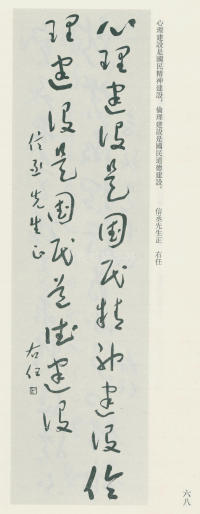 心理建設是國民精神建設，倫理建設是國民道德建設。
信丞先生正　右任
心理建設是国民精神建設倫
理建設是国民道德建設
信丞先生正
右任
六八